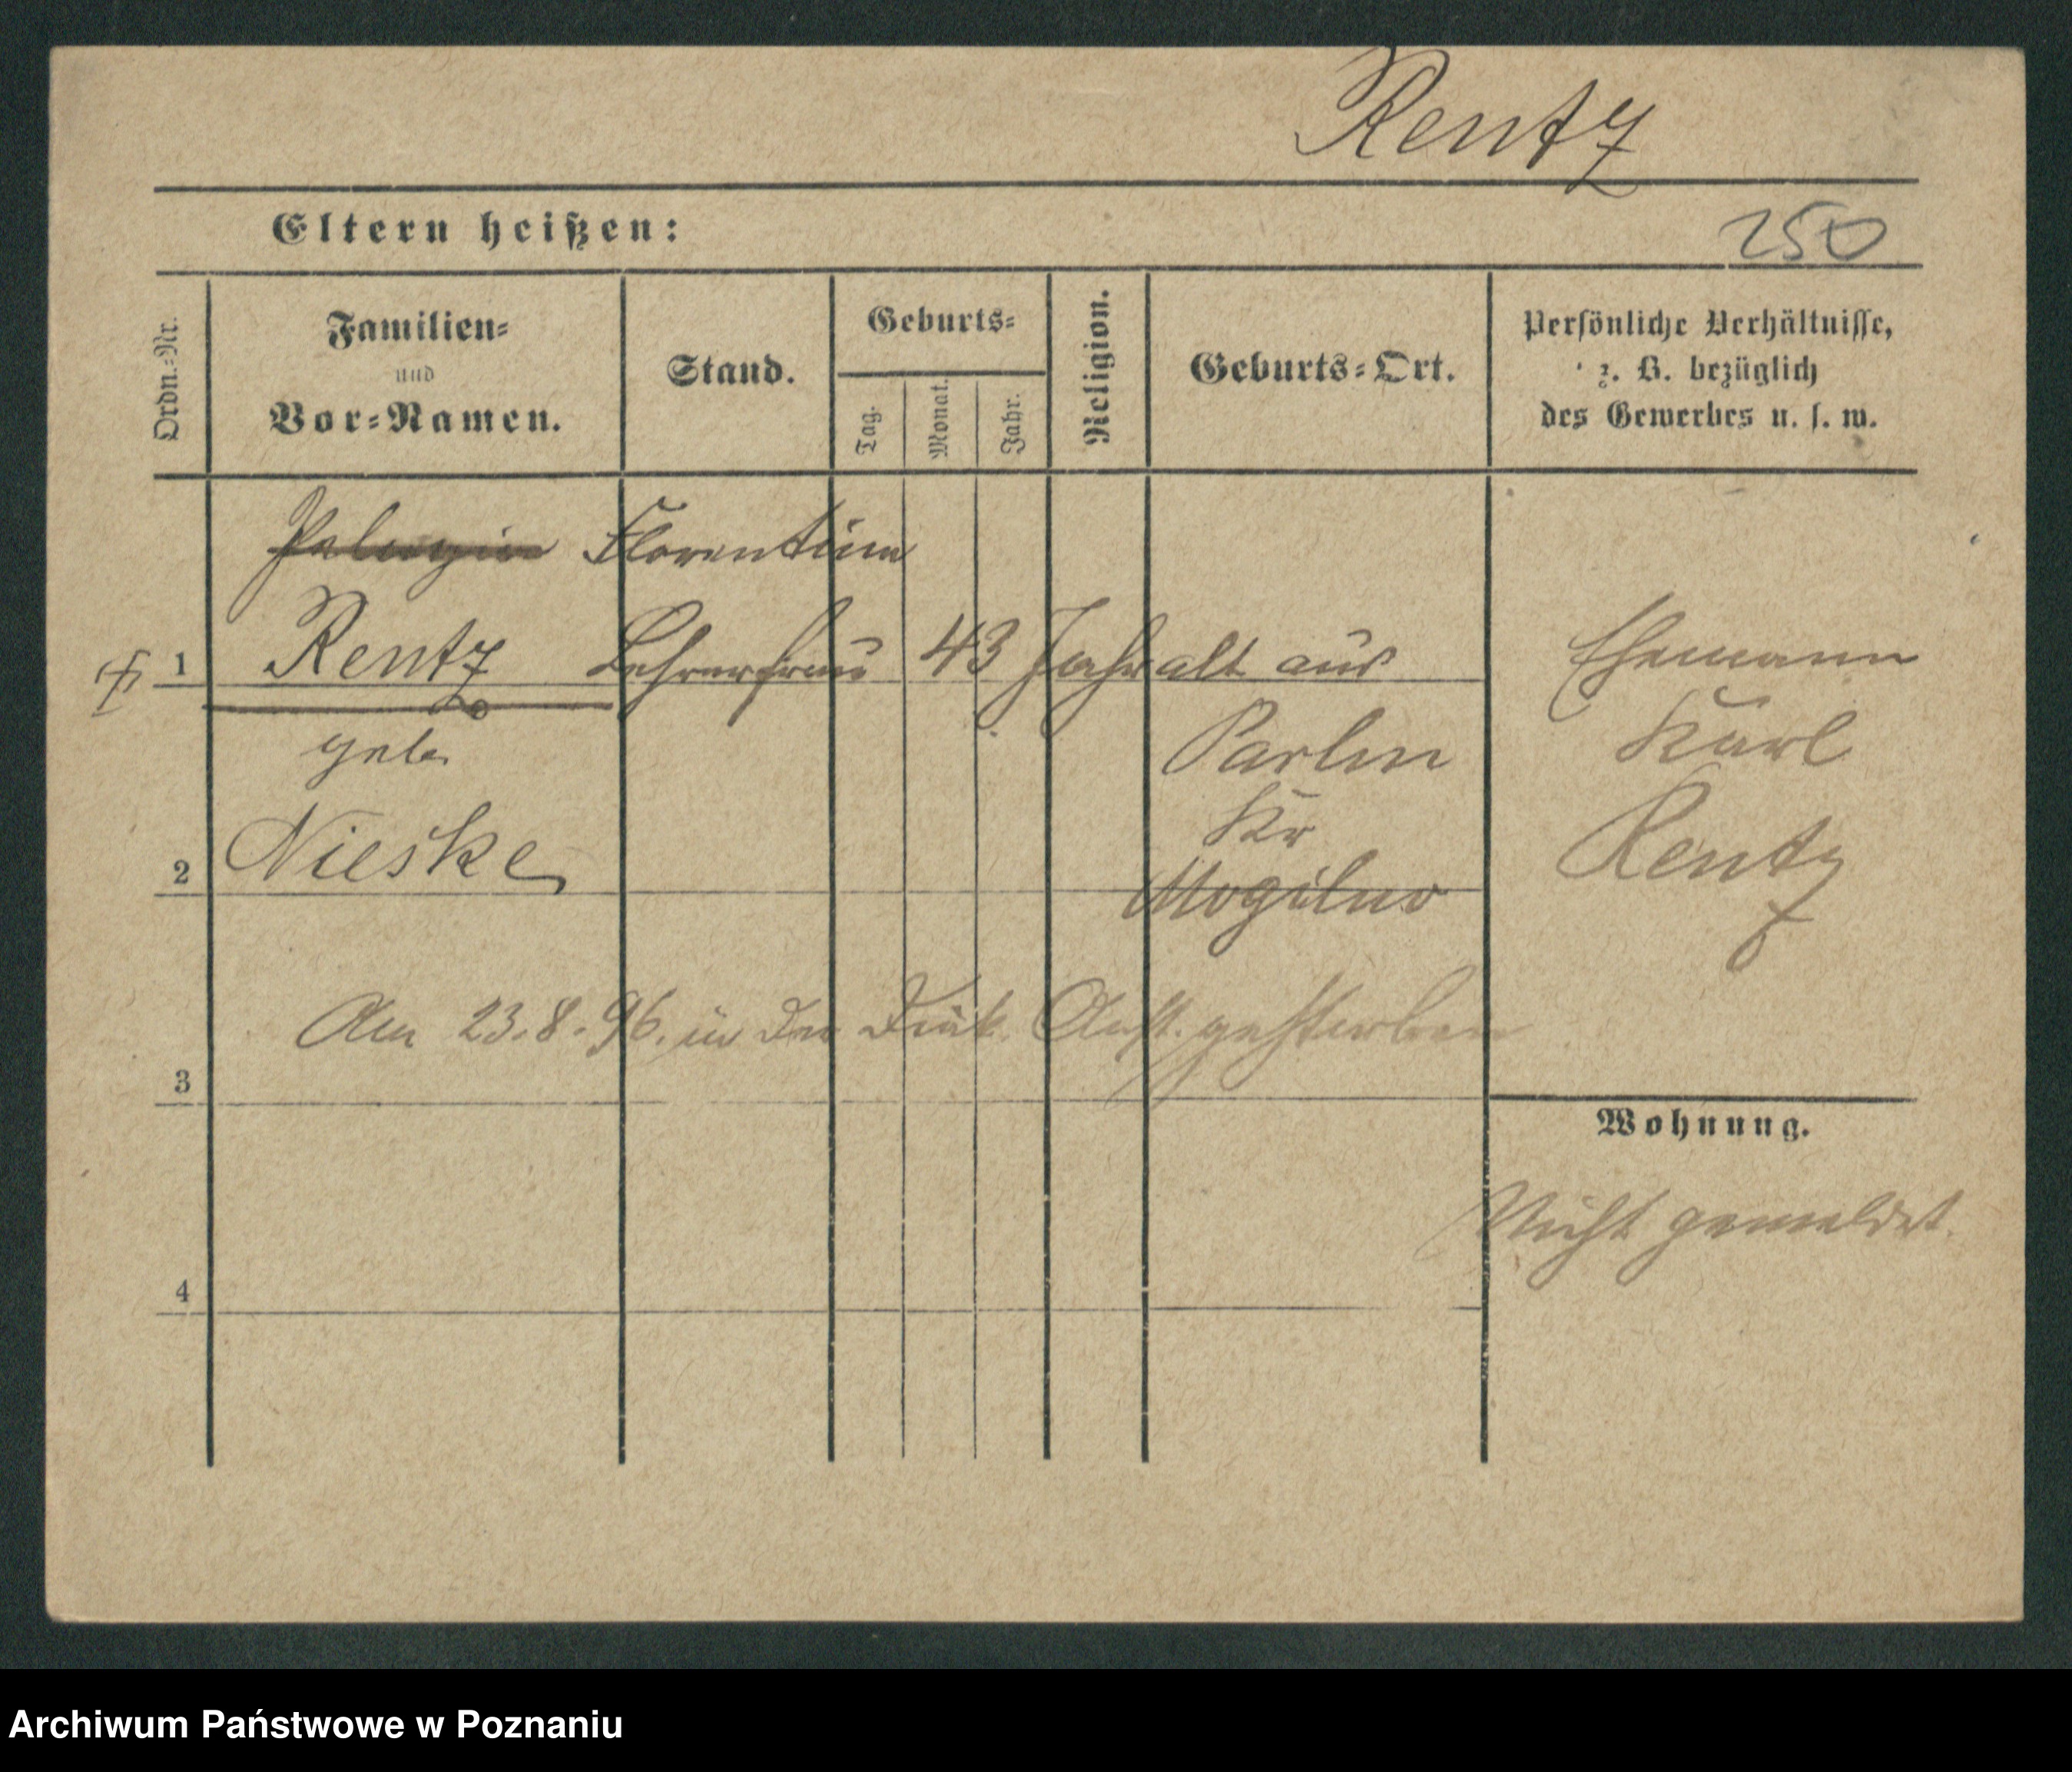 Rentz
Eltern heißen:
250
Ordn.=Nr.
Familien=
und
Vor=Namen.
Stand.
Geburts=
Tag.
Monat.
Jahr.
Religion.
Geburts=Ort.
Persönliche Verhältnisse,
z. B. bezüglich
des Gewerbes u. s. w.
Pelagia Florentine
1 Rentz Lehrerfrau 43 Jahr alt aus
geb.
Parlin
Kr
2 Nieske
Mogilno
Ehemann
Karl
Rentz
Am 23.8.96. in der Diak. Anst. gestorben
3
Wohnung.
Nicht gemeldet.
4
Archiwum Państwowe w Poznaniu